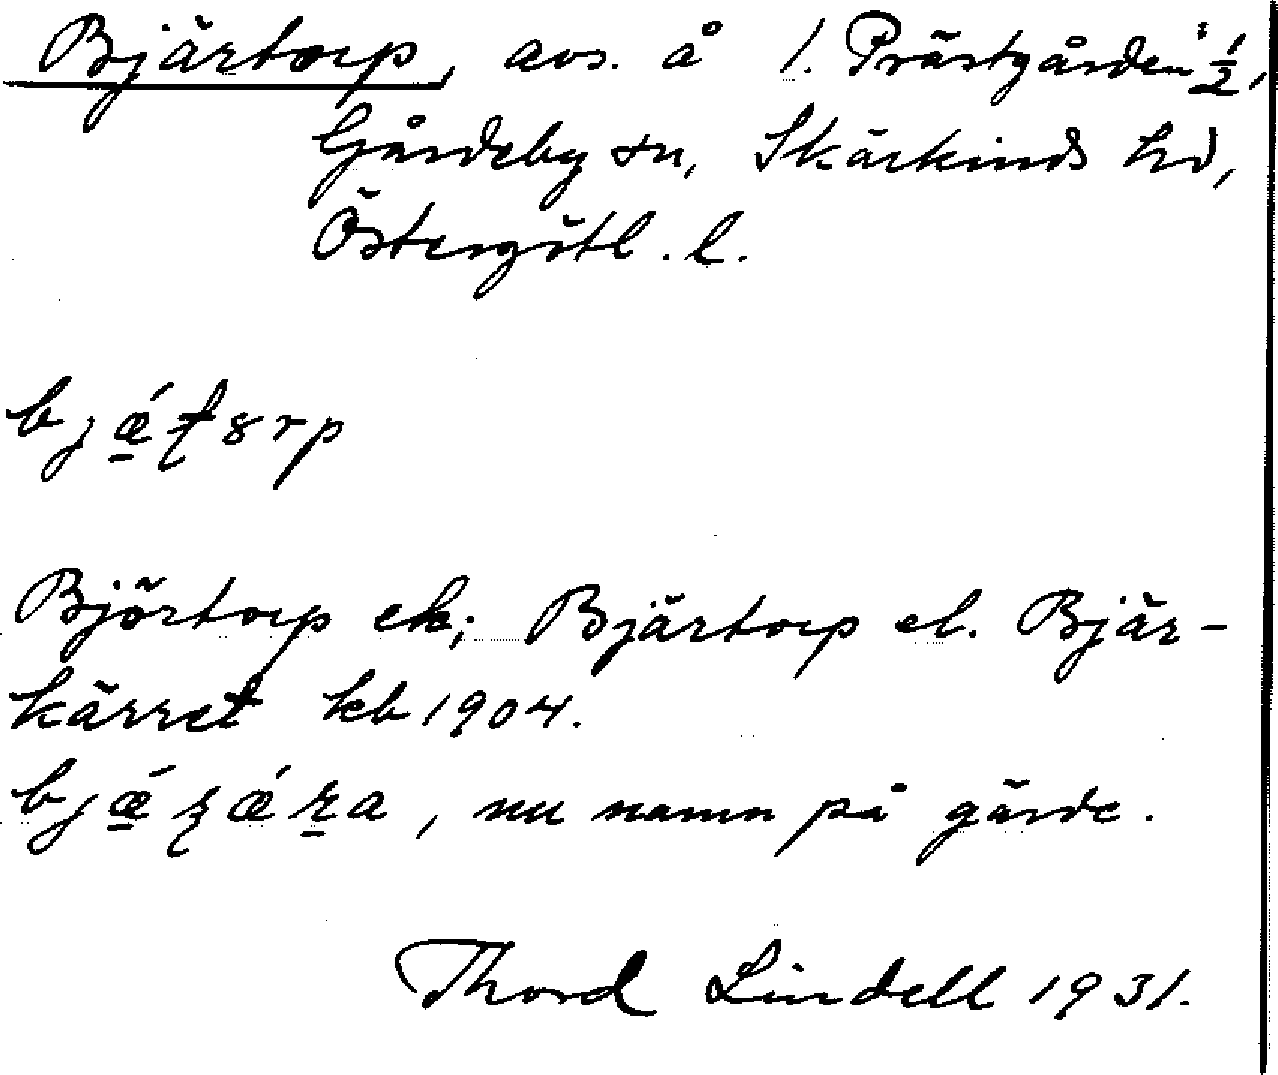 Bjärtorp, avs. å 1. Prästgården 1/2,
Gårdeby sn, Skärkinds hd,
Östergötl. l.
Björtorp ek; Bjärtorp el. Bjär-
kärret kb 1904.
, nu namn på gärde.
Thord Lindell 1931.